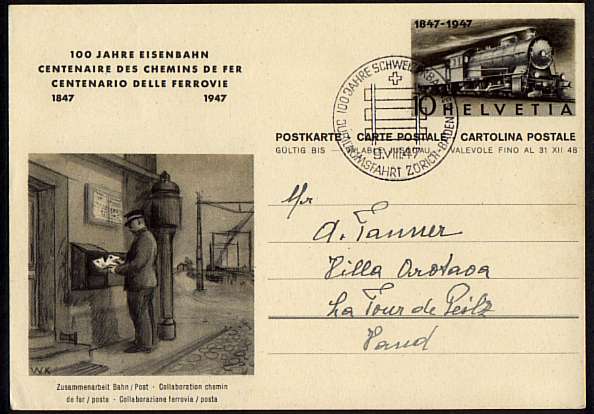 100 JAHRE EISENBAHN
CENTENAIRE DES CHEMINS DE FER
CENTENARIO DELLE FERROVIE
1847 1947
1847-1947
10 HELVETIA
100 JAHRE SCHWEIZ. BAHNEN
JUBILÄUMSFAHRT ZÜRICH-BADEN
9.VIII.47
POSTKARTE CARTE POSTALE CARTOLINA POSTALE
GÜLTIG BIS – VALABLE JUSQU'AU – VALEVOLE FINO AL 31 XII 48
Mr
A. Tanner
Villa Orotava
La Tour de Peilz
Vaud
WK
Zusammenarbeit Bahn/Post · Collaboration chemin
de fer/poste · Collaborazione ferrovia/posta